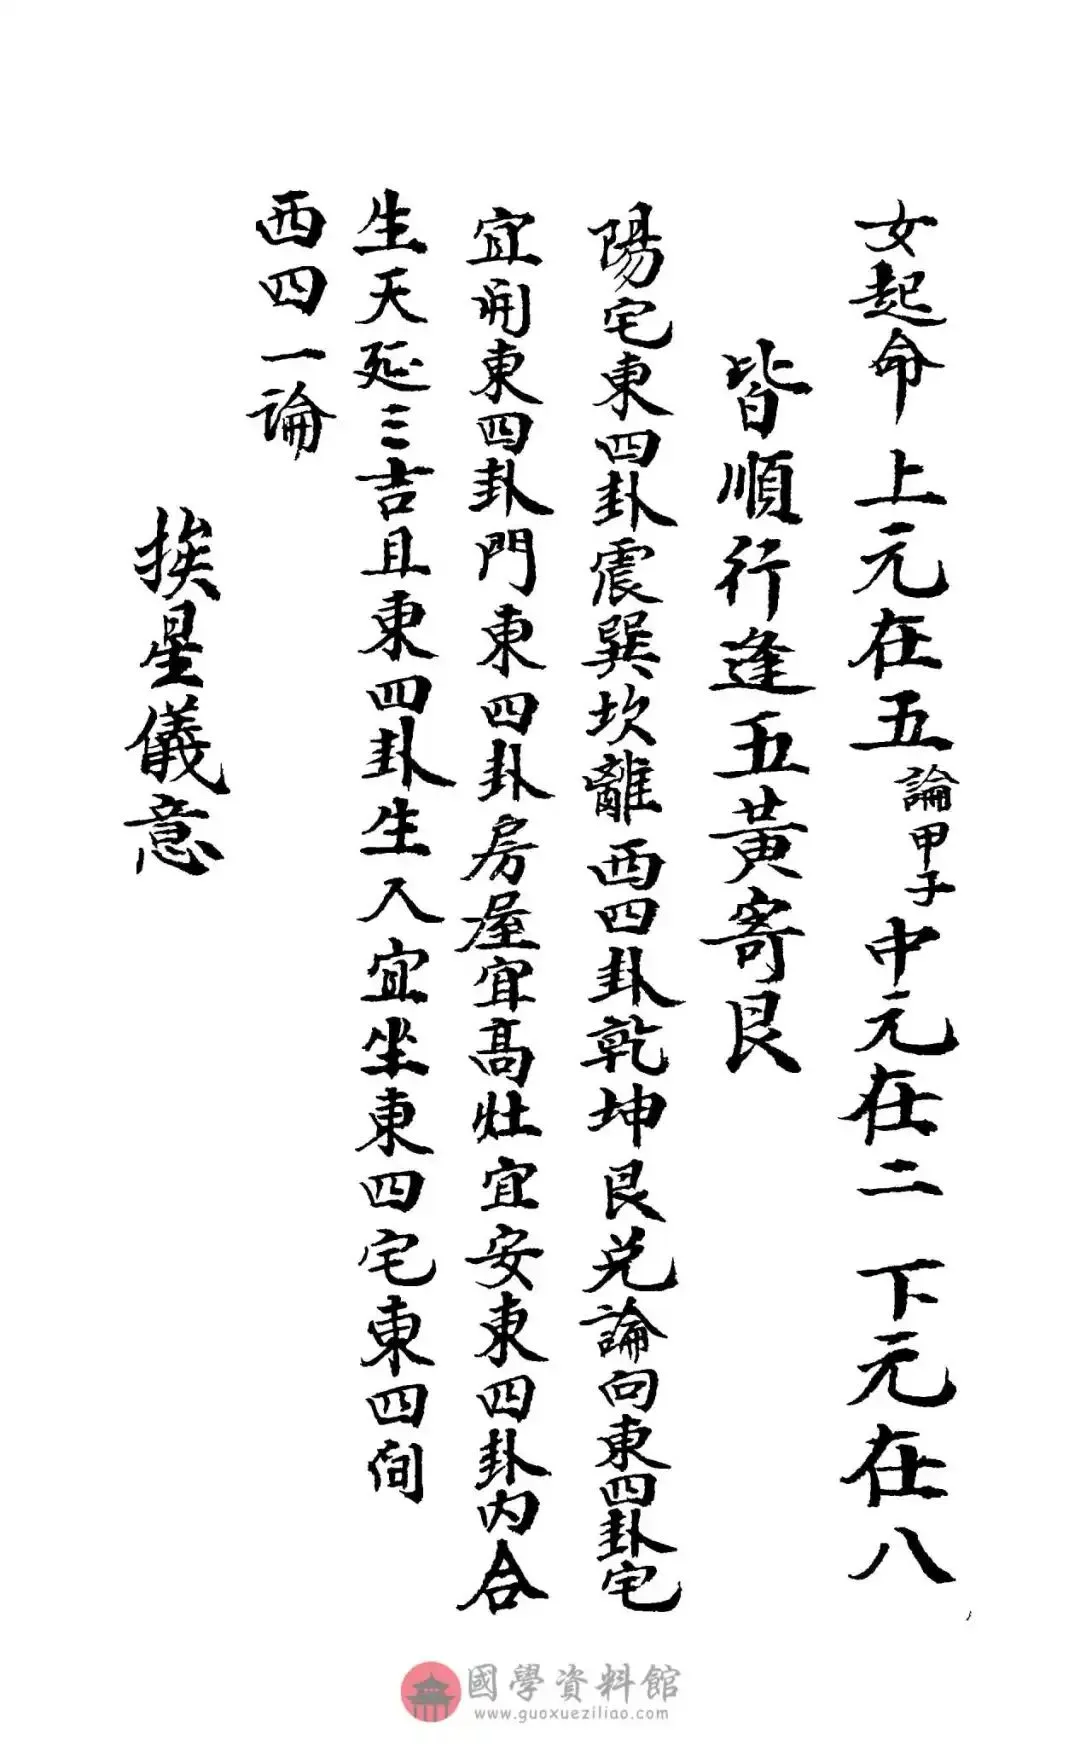 女起命上元在五論甲子中元在二下元在八
皆順行逢五黃寄艮
陽宅東四卦震巽坎離西四卦乾坤艮兌論向東四卦宅
宜開東四卦門東四卦房屋宜高灶宜安東四卦內合
生天延三吉且東四卦生人宜坐東四宅東四間
西四一論
挨星儀意
國學資料館
www.guoxueziliao.com